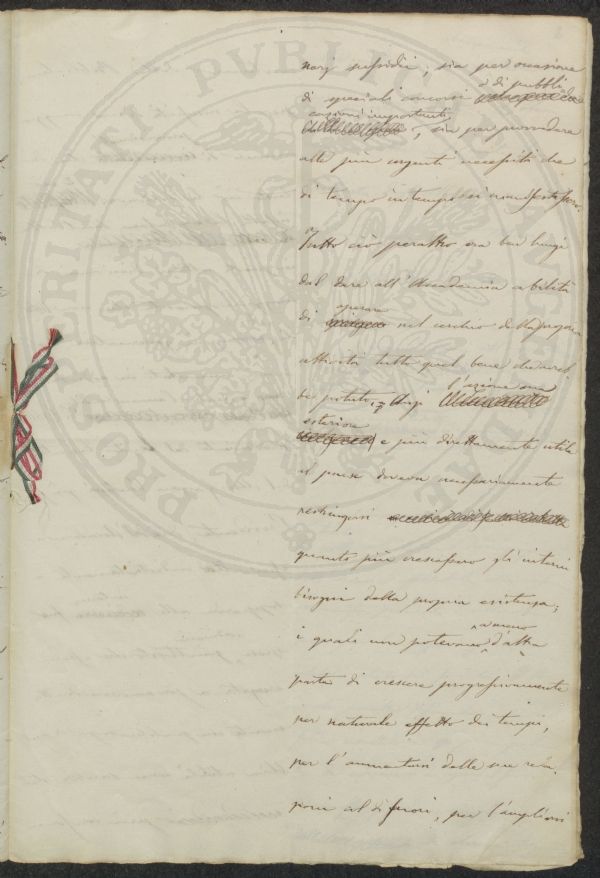 narj sussidii; sia per occasione
di speciali concorsi o di pubbli
cazioni importanti, sia per provvedere
alle più urgenti necessità che
di tempo in tempo si manifestassero.
Tutto ciò peraltro era ben lungi
dal dare all'Accademia abilità
di operare nel cerchio della propria
attività tutto quel bene che avreb
be potuto; Anzi l'azione sua
esteriore e più direttamente utile
al paese doveva necessariamente
restringersi
quanto più crescessero gli interni
bisogni della propria esistenza;
i quali non potevano a meno d'altra
parte di crescere progressivamente
per naturale effetto dei tempi,
per l'aumentarsi delle sue rela
zioni al di fuori, per l'ampliarsi
PROSPERITATI PUBLICAE AUGENDAE